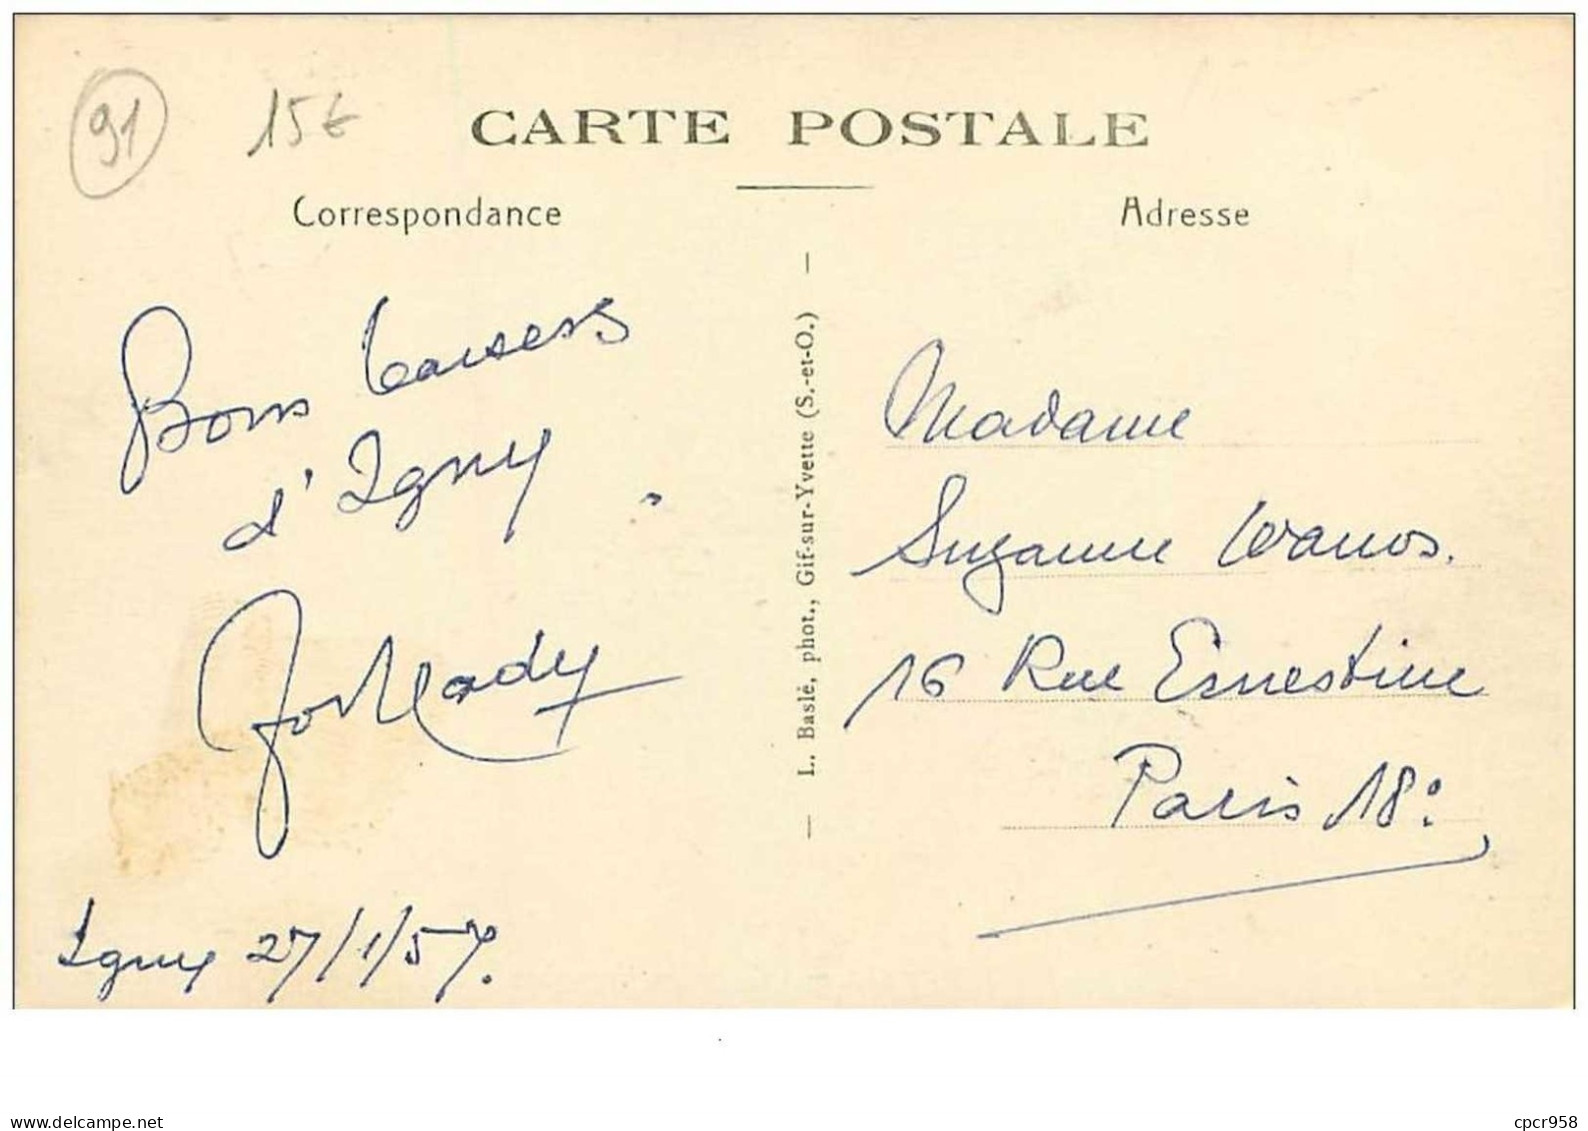 91
15€
CARTE POSTALE
Correspondance
Adresse
Bons baisers
d'Igny
Igny 27/1/57.
— L. Baslé, phot., Gif-sur-Yvette (S.-et-O.) —
Madame
Suzanne
16 Rue Ernestine
Paris 18e
www.delcampe.net
cpcr958